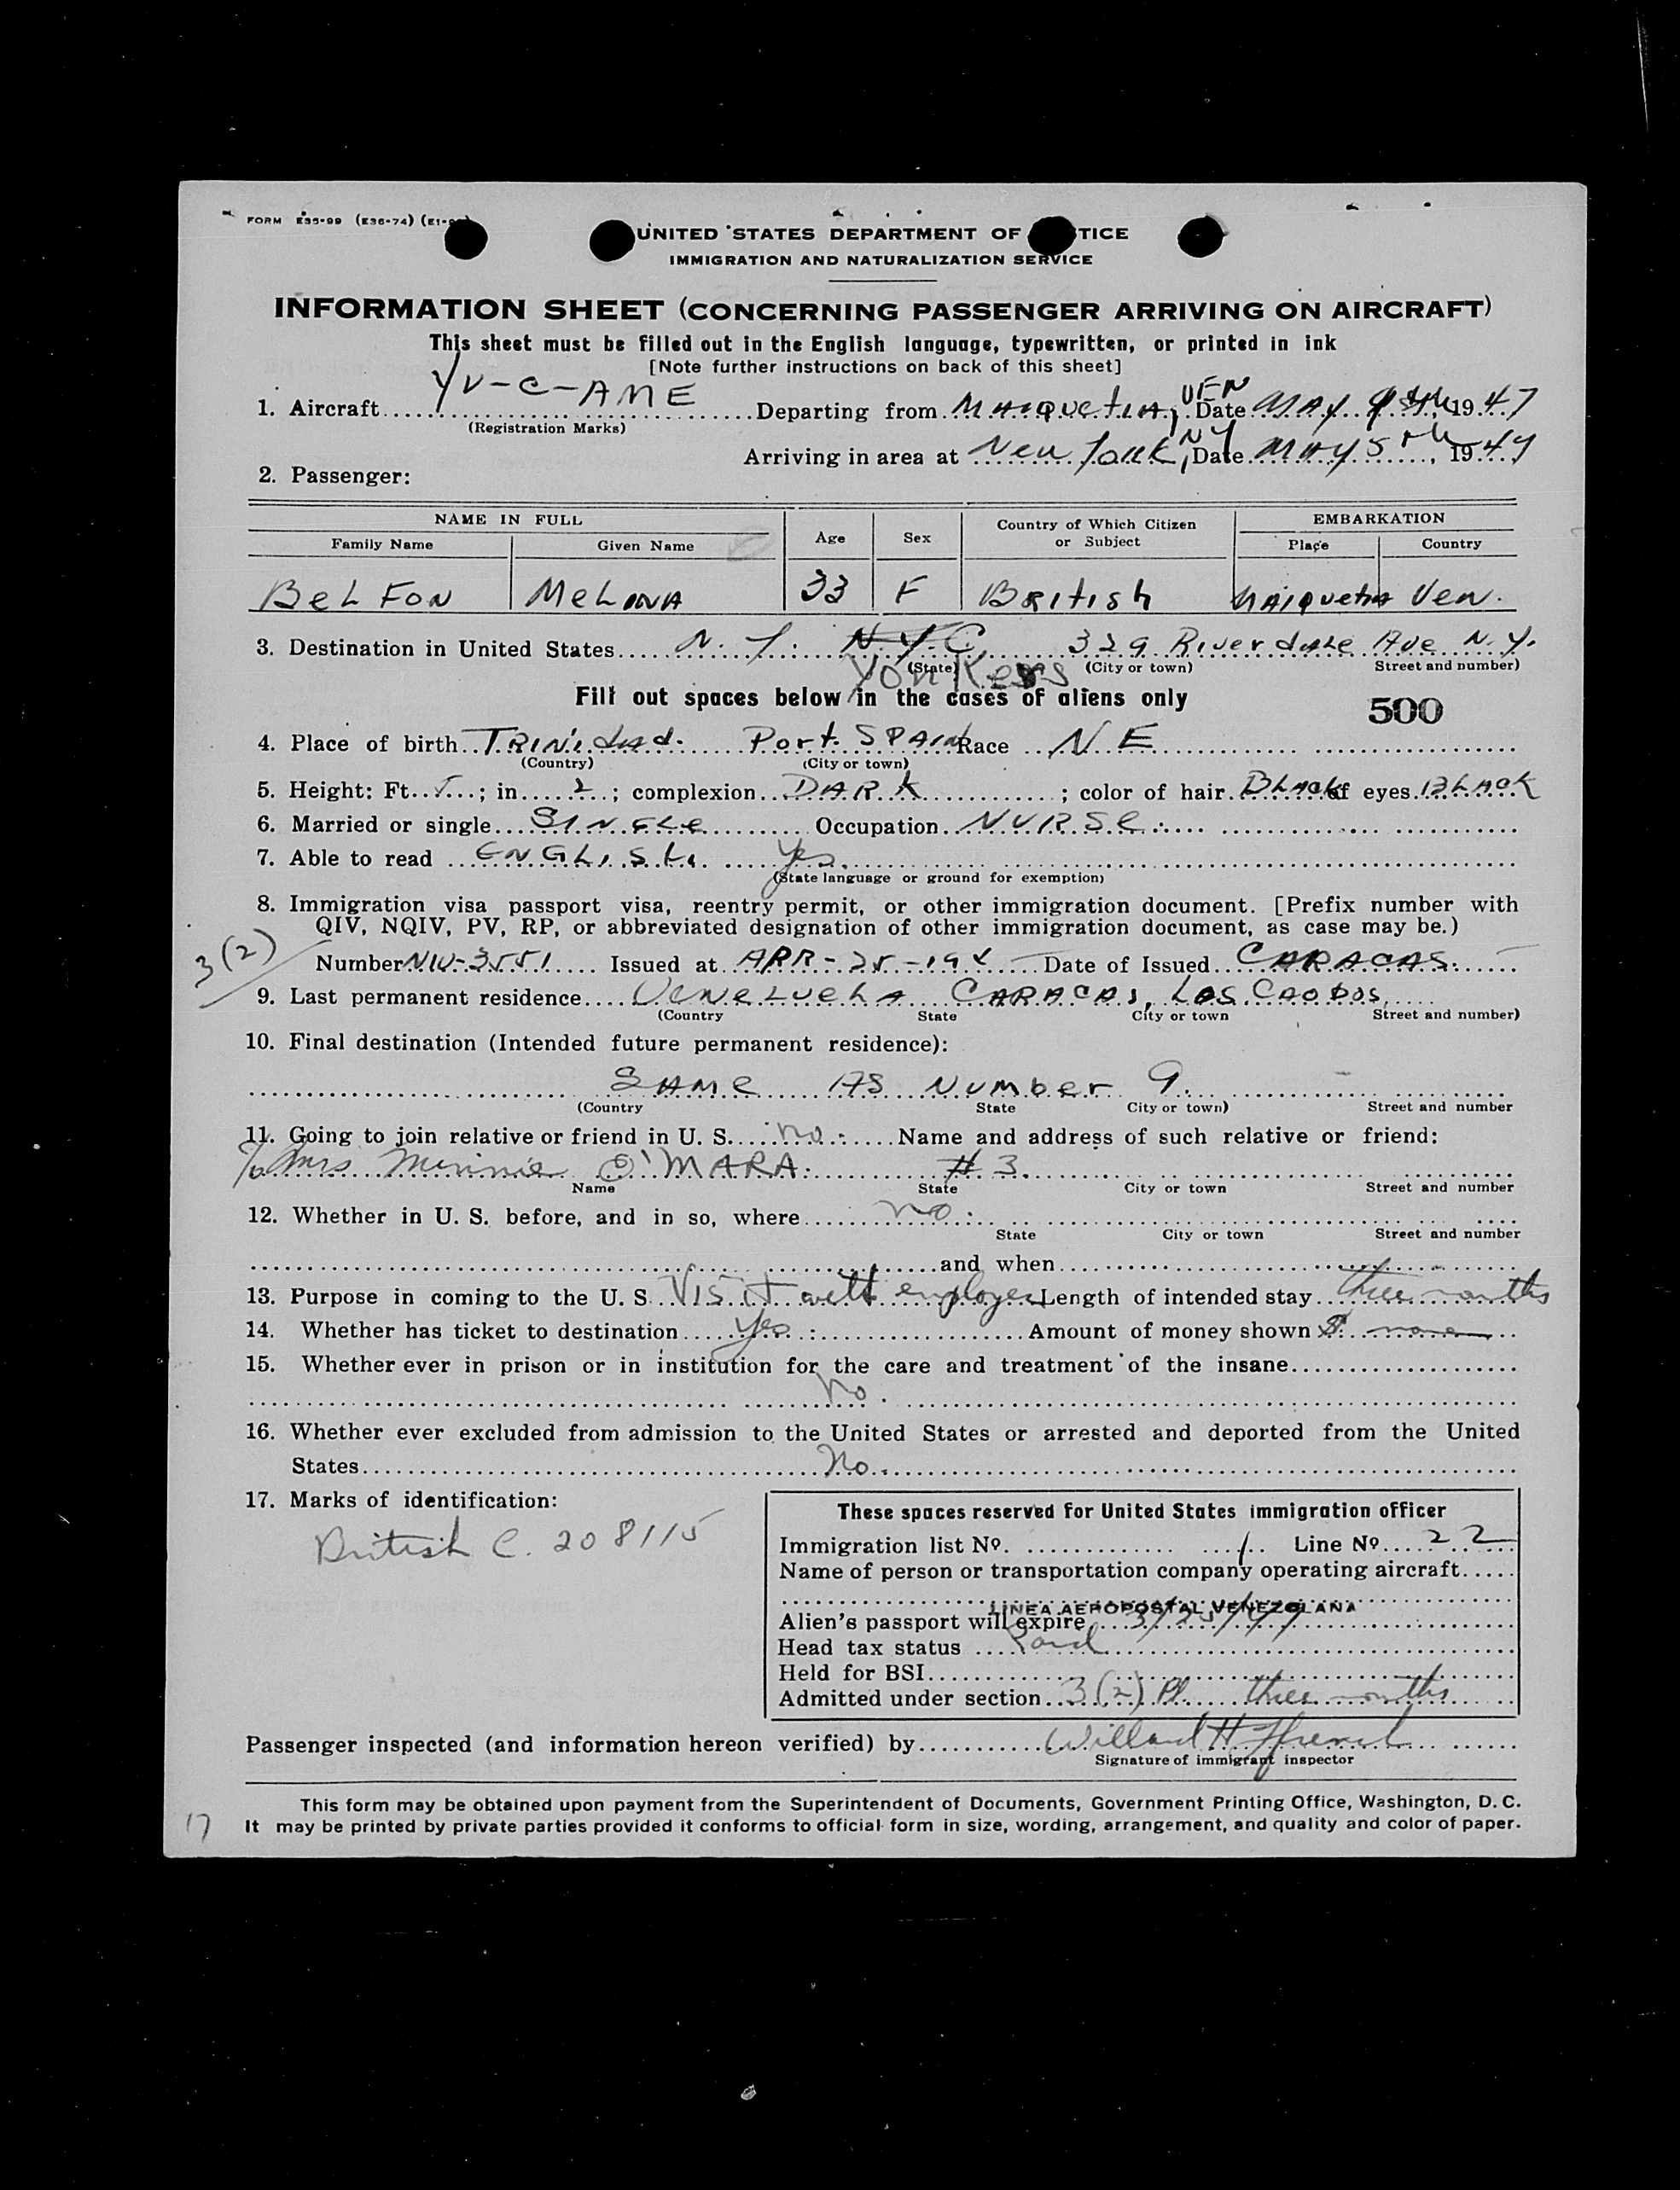 FORM E35-99 (E36-74) (E1-
UNITED STATES DEPARTMENT OF TICE
IMMIGRATION AND NATURALIZATION SERVICE
INFORMATION SHEET (CONCERNING PASSENGER ARRIVING ON AIRCRAFT)
This sheet must be filled out in the English language, typewritten, or printed in ink
[Note further instructions on back of this sheet]
1. Aircraft YV-C-AME Departing from Maiquetia, VEN Date May 1947
(Registration Marks)
Arriving in area at New York, NY Date May 5th, 1947
2. Passenger:
NAME IN FULL Age Sex Country of Which Citizen or Subject EMBARKATION
Family Name Given Name Place Country
BelFon Melina 33 F British Maiquetia Ven.
3. Destination in United States N.Y. N.Y.C. 329 Riverdale Ave N.Y.
Yonkers
(State) (City or town) Street and number)
Fill out spaces below in the cases of aliens only
500
4. Place of birth Trinidad. Port. SPAIN Race NE
(Country) (City or town)
5. Height: Ft. 5; in 2; complexion DARK; color of hair Black of eyes Black
6. Married or single Single Occupation Nurse
7. Able to read English. Yes.
(State language or ground for exemption)
8. Immigration visa passport visa, reentry permit, or other immigration document. [Prefix number with
QIV, NQIV, PV, RP, or abbreviated designation of other immigration document, as case may be.)
3(2)
Number NIV-3551 Issued at APR-25-194 Date of Issued CARACAS.
9. Last permanent residence Venezuela CARACAS, Los Caobos
(Country State City or town Street and number)
10. Final destination (Intended future permanent residence):
SAME AS Number 9.
(Country State City or town) Street and number
11. Going to join relative or friend in U. S. no. Name and address of such relative or friend:
Mrs Minnie O'MARA. #3.
Name State City or town Street and number
12. Whether in U. S. before, and in so, where no.
State City or town Street and number
and when
13. Purpose in coming to the U. S. Visit with employer Length of intended stay three months
14. Whether has ticket to destination Yes Amount of money shown $ none
15. Whether ever in prison or in institution for the care and treatment of the insane
No.
16. Whether ever excluded from admission to the United States or arrested and deported from the United
States No.
17. Marks of identification:
British C. 208115
These spaces reserved for United States immigration officer
Immigration list No. 1 Line No. 22
Name of person or transportation company operating aircraft
LINEA AEROPOSTAL VENEZOLANA
Alien's passport will expire
Head tax status Paid
Held for BSI
Admitted under section 3(2) Pl. three months
Passenger inspected (and information hereon verified) by Willard H
Signature of immigrant inspector
This form may be obtained upon payment from the Superintendent of Documents, Government Printing Office, Washington, D. C.
It may be printed by private parties provided it conforms to official form in size, wording, arrangement, and quality and color of paper.
17